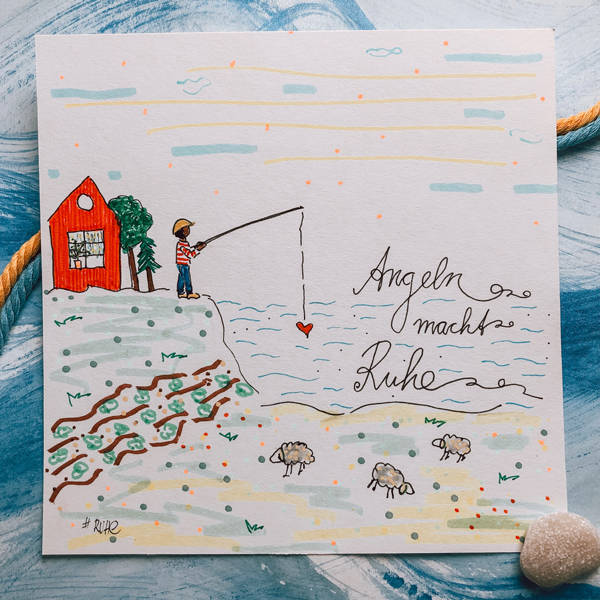 Angeln
macht
Ruhe
# RUHE